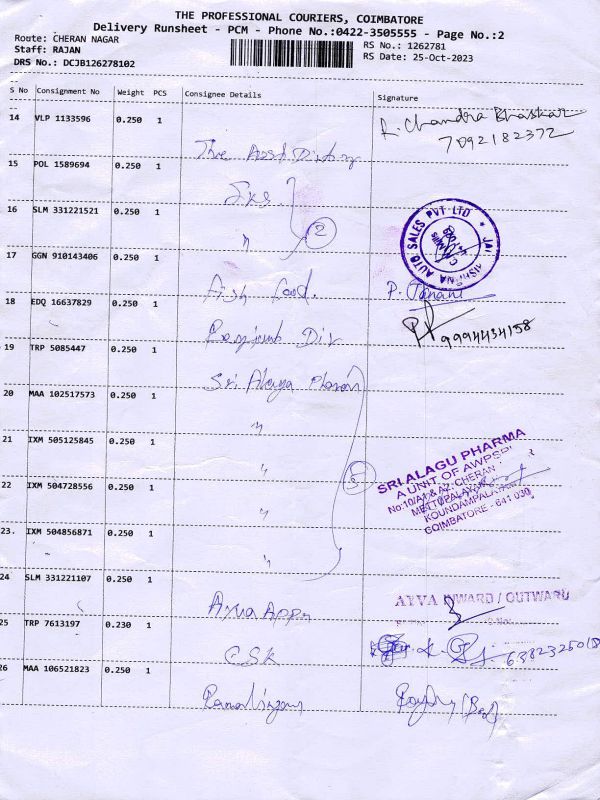 THE PROFESSIONAL COURIERS, COIMBATORE
Delivery Runsheet - PCM - Phone No.:0422-3505555 - Page No.:2
Route: CHERAN NAGAR
RS No.: 1262781
Staff: RAJAN
RS Date: 25-Oct-2023
DRS No.: DCJB126278102
S No Consignment No Weight PCS Consignee Details Signature
14 VLP 1133596 0.250 1
R. Chandra Bhaskar
7092182372
The
15 POL 1589694 0.250 1
SKS
16 SLM 331221521 0.250 1
"
2
JAI KRISHNA AUTO SALES PVT LTD
17 GGN 910143406 0.250 1
P.
18 EDQ 16637829 0.250 1
9994434158
19 TRP 5085447 0.250 1
Sri
20 MAA 102517573 0.250 1
"
21 IXM 505125845 0.250 1
"
SRI ALAGU PHARMA
A UNIT OF
No:10/A1 & A2, CHERAN
METTUPALAYAM
KOUNDAMPALAYAM
COIMBATORE - 641 030
5
22 IXM 504728556 0.250 1
"
23. IXM 504856871 0.250 1
"
24 SLM 331221107 0.250 1
INWARD / OUTWARD
25 TRP 7613197 0.230 1
CSK
26 MAA 106521823 0.250 1